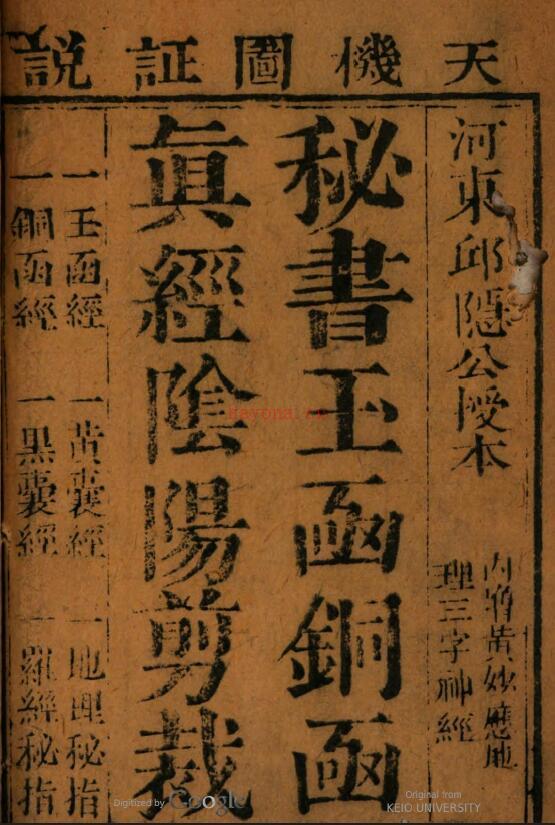 天機圖証説
河東邱隱公授本
内黄妙應地
理三字神經
秘書玉函銅函
眞經陰陽剪裁
一玉函經 一黄囊經 一地理秘指
一銅函經 一黒囊經 一羅經秘指
nayona.cn
Digitized by Google
Original from
KEIO UNIVERSITY